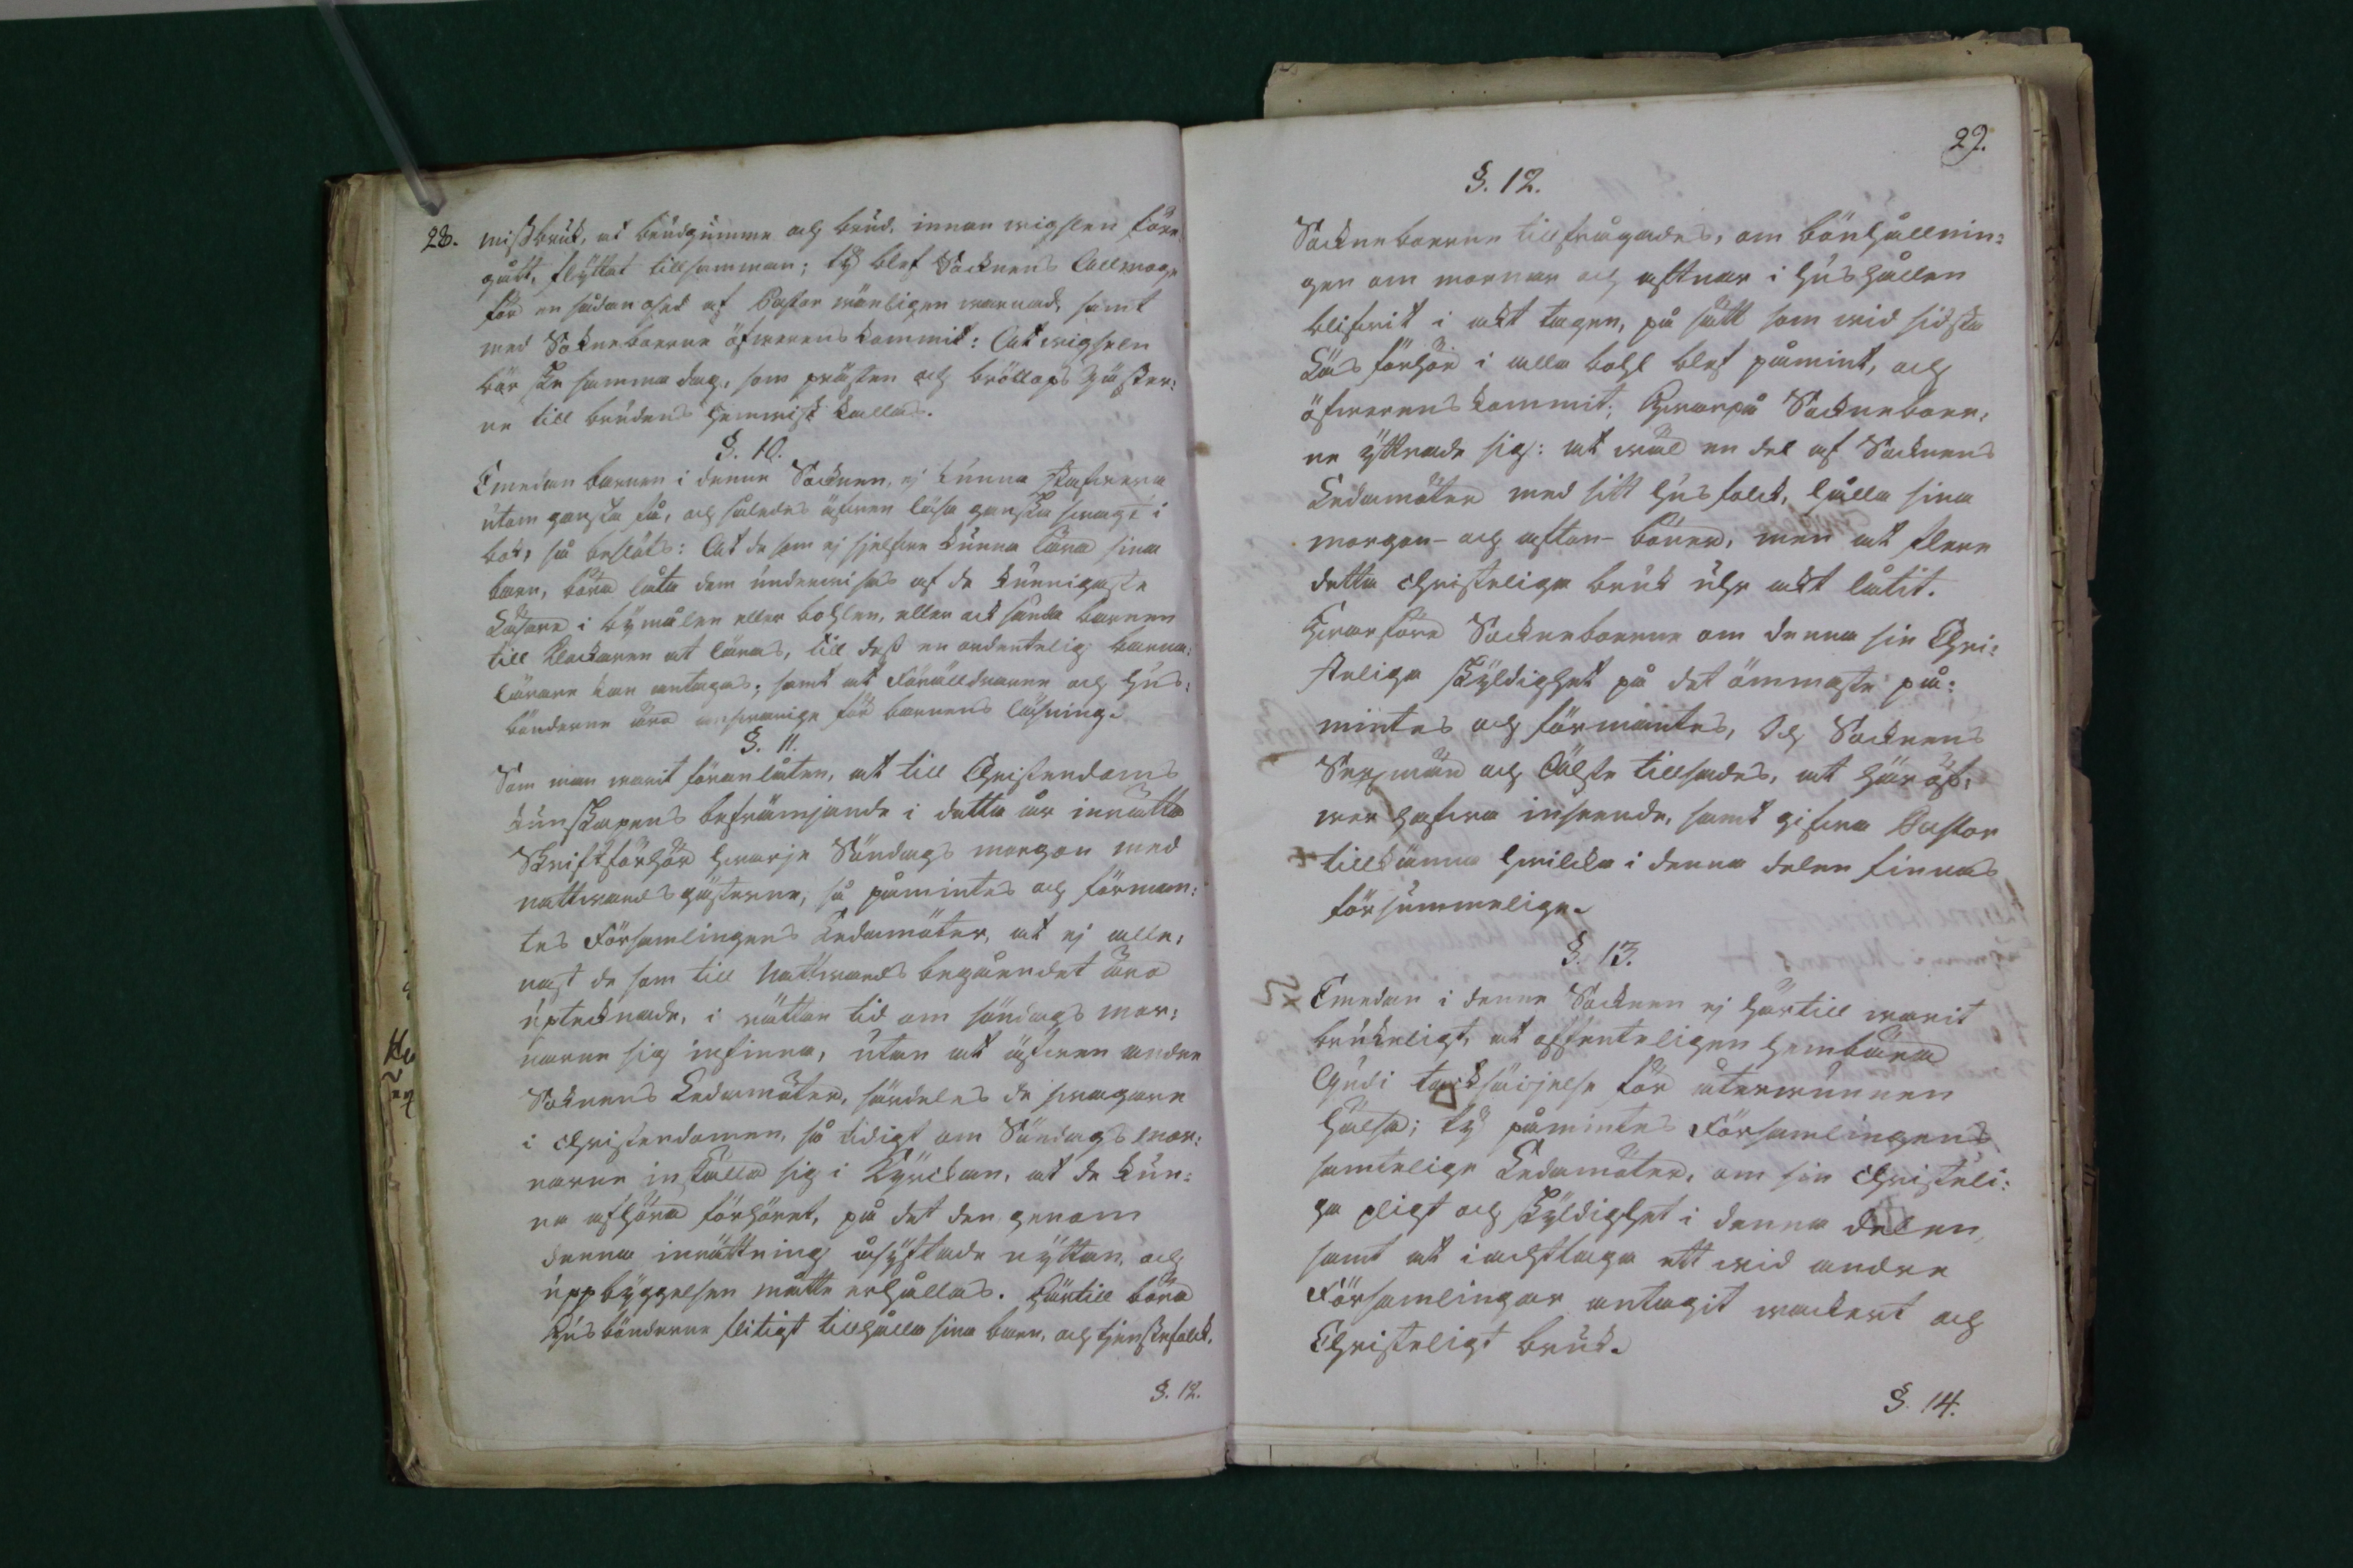 28. missbruk, at brudgumme och brud, innan wigslen före,
gått, flyttat tillsamman; ty blef Socknens Allmoge
för en sådan osed af Pastor wänligen warnad, samt
med Sokneboerne öfwerenskommit: At wigseln
bör ske samma dag, som prästen och bröllops gäster:
ne till brudens hemwist kallas.
§. 10.
Emedan barnen i denne Socknen, ej kunna stafwa
utom ganska få, och således äfwen läsa ganska swagt i
bok, så beslöts: At de som ej sjelfwe kunna lära sina
barn, böra låta dem underwisas af de kunnigaste
Läsare i bymålen eller bohlen, eller ock sända barnen
till Klockaren at läras, till dess en ordentelig barna:
lärare kan antagas; samt at Föräldrarne och Hus:
bönderne äro answarige för barnens läsning.
§. 11.
Som man warit föranlåten, at till Christendoms
kunskapens befrämjande i detta år inrätta
Skriftförhör hwarje Söndags morgon med
nattwardsgästerne, så påmintes och förman:
tes Församlingens Ledamöter, at ej alle,
nast de som till Nattwards begåendet äro
uptecknade, i rättan tid om söndags mor:
narne sig infinna, utan at äfwen andre
Soknens Ledamöter, särdeles de swagare
i Christendomen, så tidigt om Söndags mor:
narne inställa sig i Kyrckan, at de kun:
na afhöra förhöret, på det den genom
denna inrättning åsyftade nyttan, och
uppbyggelsen måtte erhållas. Härtill böra
Husbönderne flitigt tillhålla sina barn, och tjenstefolck.
§. 12.
29.
§. 12.
Sockneboerne tillfrågades, om bönhållnin:
gen om mornar och aftnar i hushållen
blifwit i akt tagen, på sätt som wid sidsta
Läsförhör i alla bohl blef påmint, och
öfwerenskommit; Hwarpå Sockneboer:
ne yttrade sig: at wäl en del af Socknens
Ledamöter med sitt husfolck, hålla sina
morgon- och afton-böner, men at flere
detta christeliga bruk uhr akt låtit.
Hwarföre Sockneboerne om denna sin Chri:
steliga skyldighet på det ömmaste på:
mintes och förmantes, Och Socknens
Sexmän och Älste tillsades, at här öf:
wer hafwa inseende, samt gifwa Pastor
tillkänna hwilcka i denna delen finnas
försummelige.
§. 13.
Emedan i denne Socknen ej härtill warit
brukeligt, at offenteligen hembära
Gudi tacksäijelse för återwunnen
hälsa; ty påmintes Församlingens
samtelige Ledamöter, om sin Christeli:
ga pligt och skyldighet i denna delen,
samt at iachttaga ett wid andre
Församlingar antagit wackert och
Christeligt bruk.
§. 14.